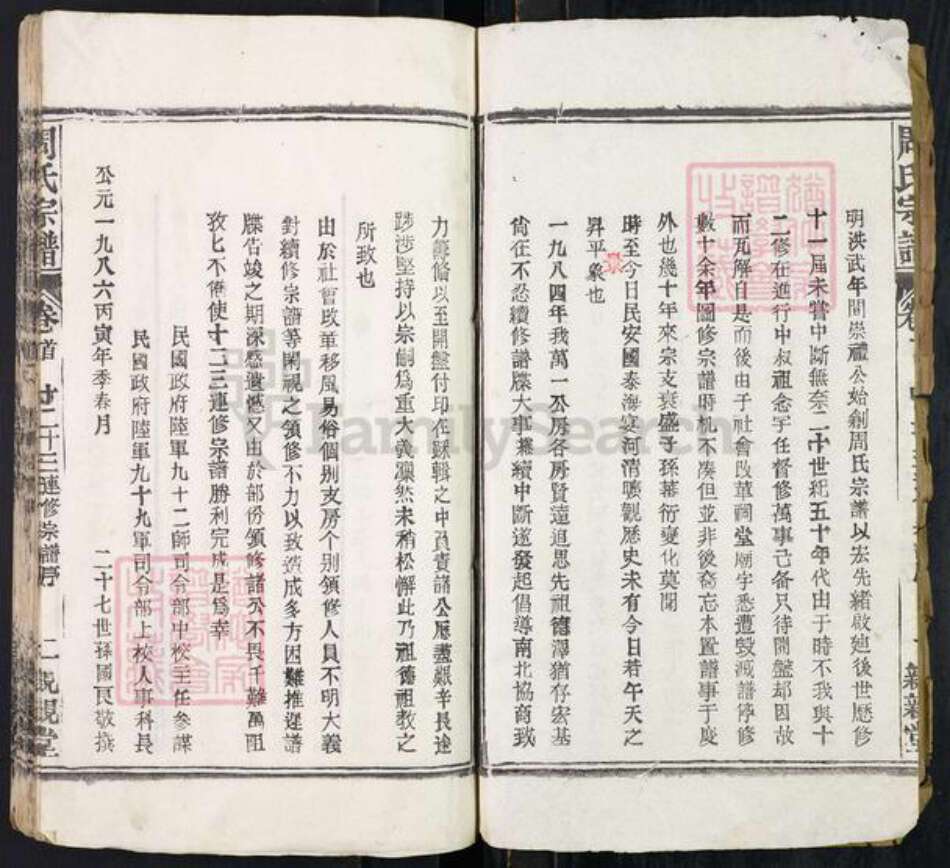 周氏宗譜
明洪武年間崇禮公始創周氏宗譜以宏先緒啟廸後世歷修
十一屆未嘗中斷無奈二十世紀五十年代由于時不我與十
二修在進行中叔祖念宇任督修萬事已备只待開盤却因故
而瓦解自是而後由于社會改革祠堂廟宇悉遭毀滅譜停修
數十余年圖修宗譜時机不凑但並非後裔忘本置譜事于度
外也幾十年來宗支衰盛子孫蕃衍變化莫聞
時至今日民安國泰海宴河清曠觀歷史未有今日若午天之
昇平象也
一九八四年我萬一公房各房賢達追思先祖德澤猶存宏基
尙在不忍續修譜牒大事業續中斷遂發起倡導南北協商或
力籌備以至開盤付印在踩輯之中負責諸公歷盡艱辛長途
跋涉堅持以宗嗣爲重大義凛然未稍松懈此乃祖德祖教之
所致也
由於社會改革移風易俗個别支房个别領修人員不明大義
對續修宗譜等閑視之領修不力以致造成多方困難推遲譜
牒告竣之期深感遺憾又由於部份領修諸公不畏千難萬阻
孜匕不倦使十二三連修宗譜勝利完成是爲幸
民國政府陸軍九十二師司令部中校主任參謀
民國政府陸軍九十九軍司令部上校人事科長
二十七世孫國民敬撰
公元一九八六丙寅年季春月
周氏宗譜
卷首
十二十三連修宗譜序
二
親親堂
FamilySearch